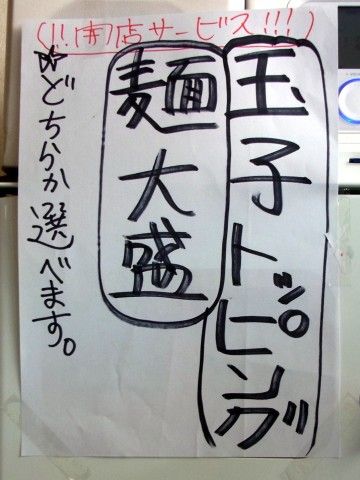 (!!開店サービス!!!)
玉子トッピング
麺大盛
☆どちらか選べます。